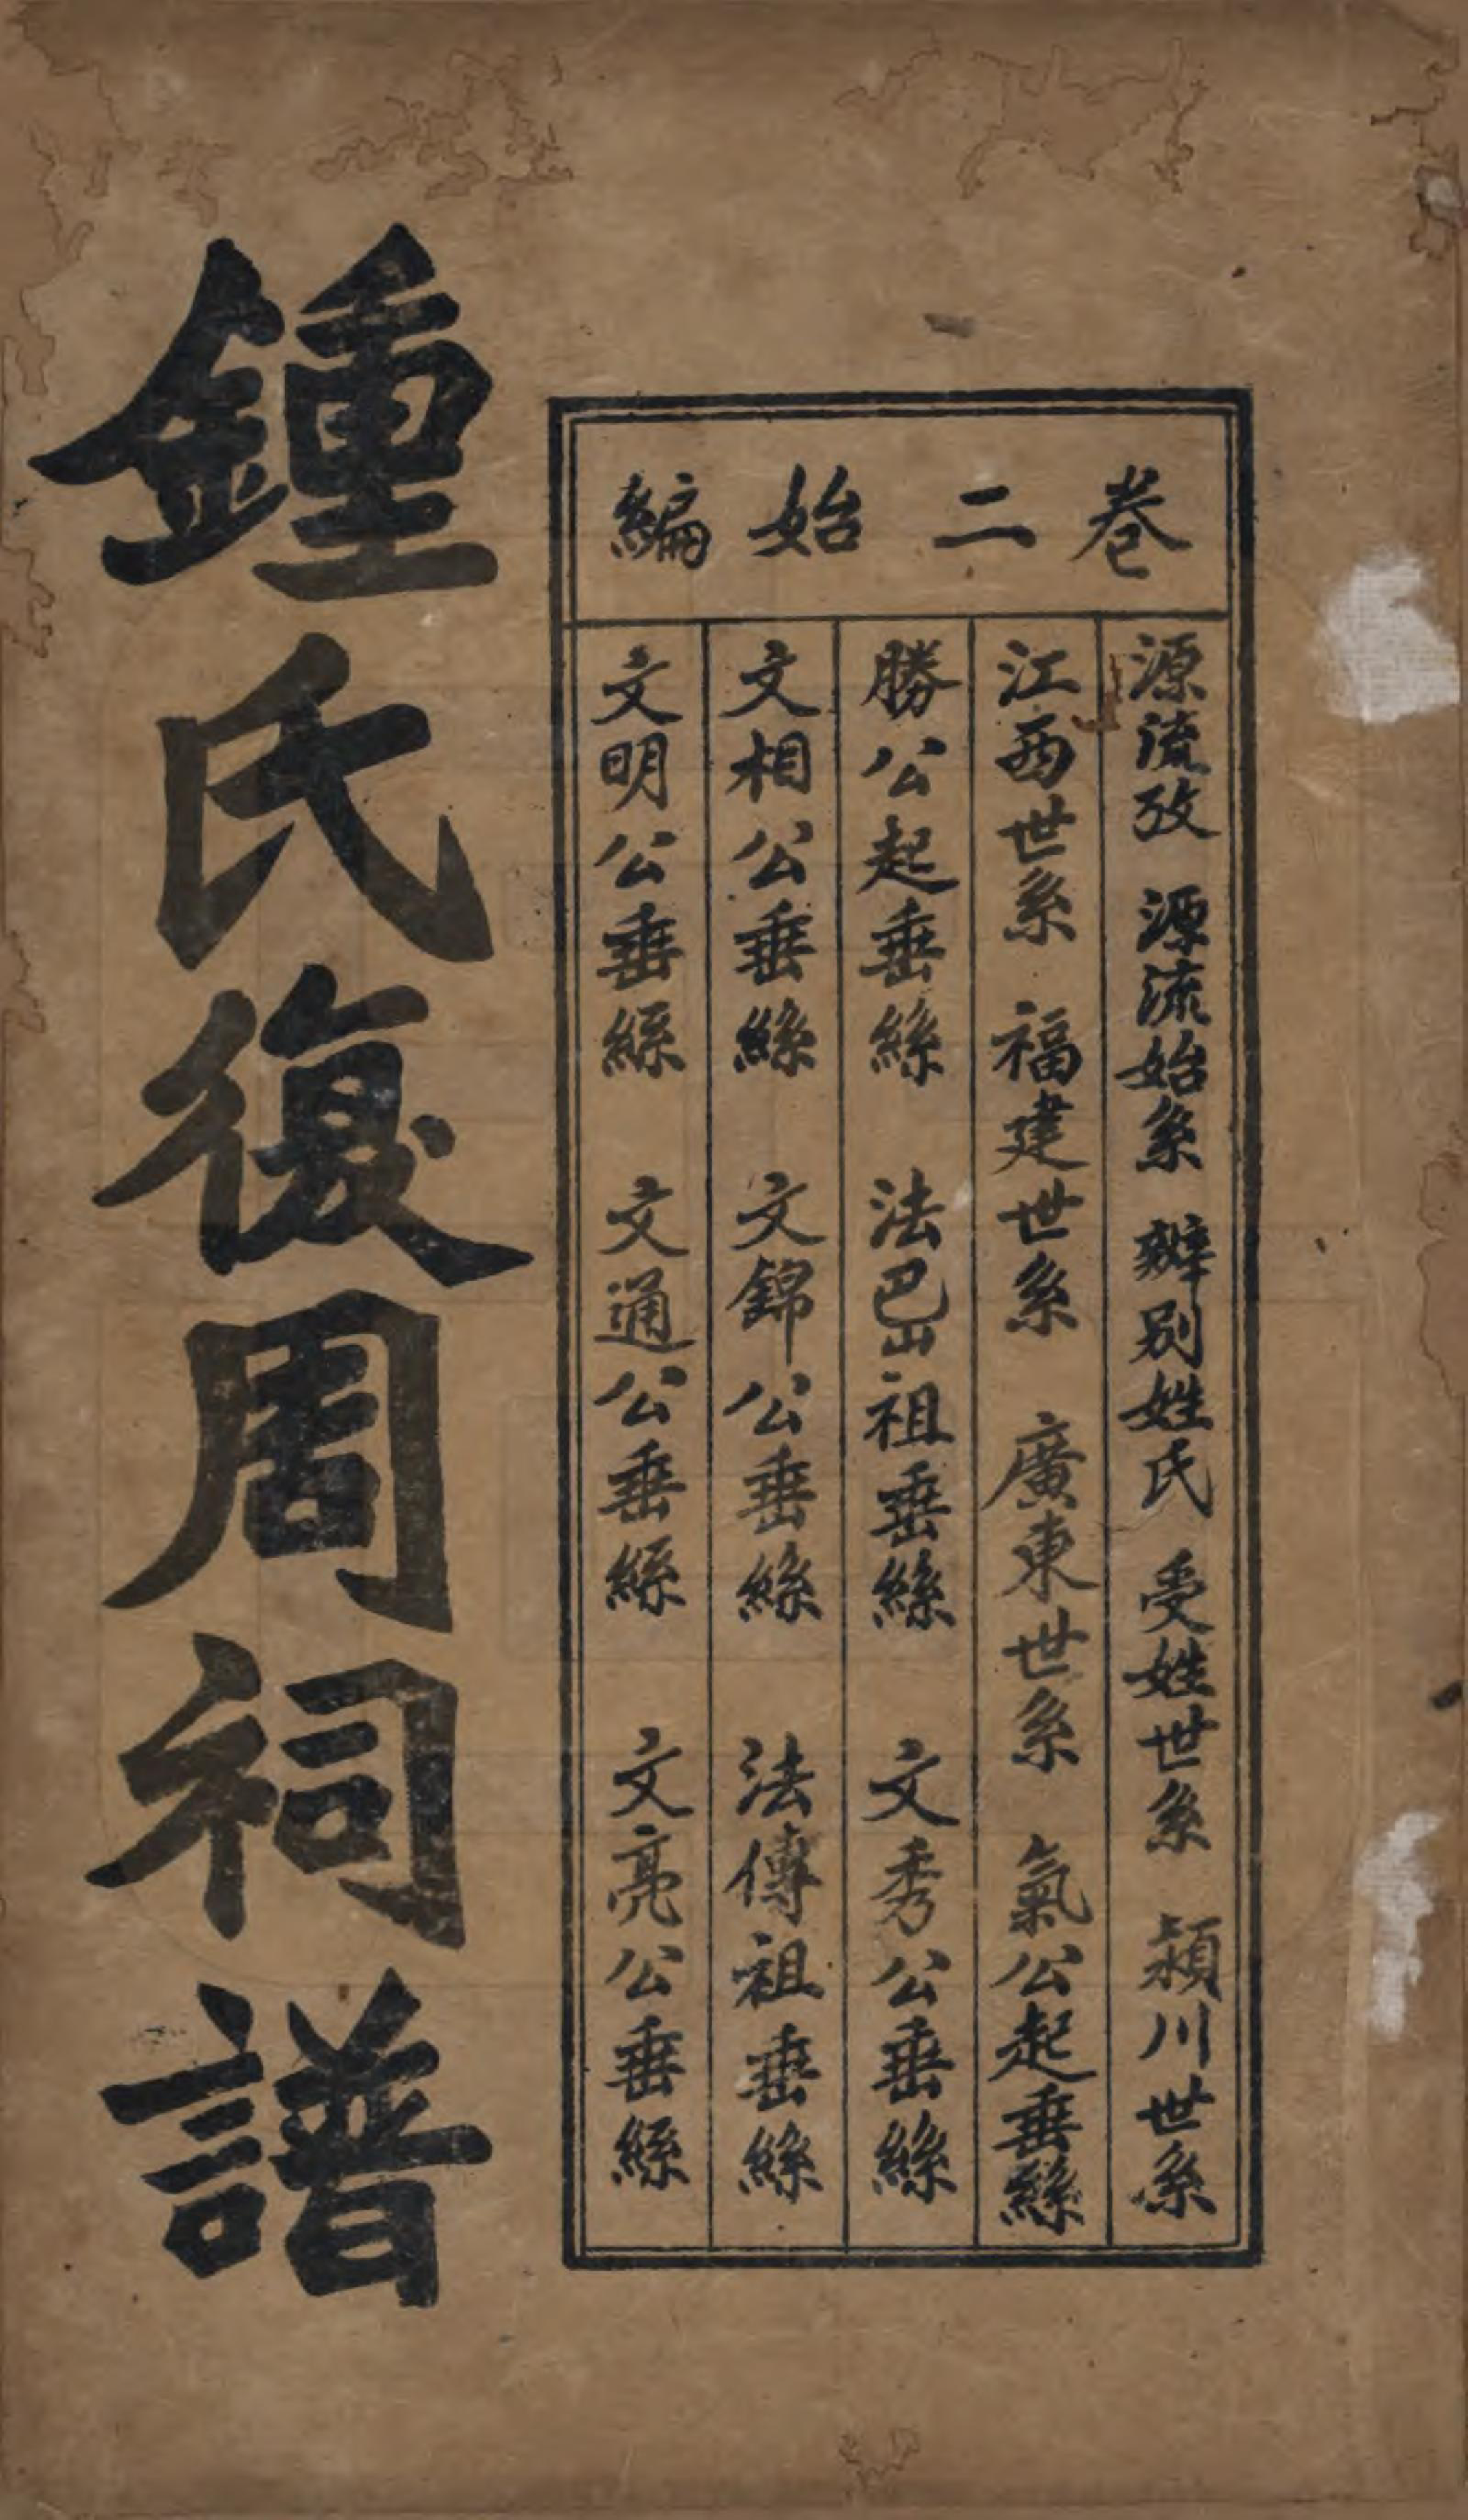 卷二始編
源流攷 源流始系 辨别姓氏 受姓世系 潁川世系
江西世系 福建世系 廣東世系 氣公起垂絲
勝公起垂絲 法巴山祖垂絲 文秀公垂絲
文相公垂絲 文錦公垂絲 法傳祖垂絲
文明公垂絲 文通公垂絲 文亮公垂絲
鍾氏復周祠譜